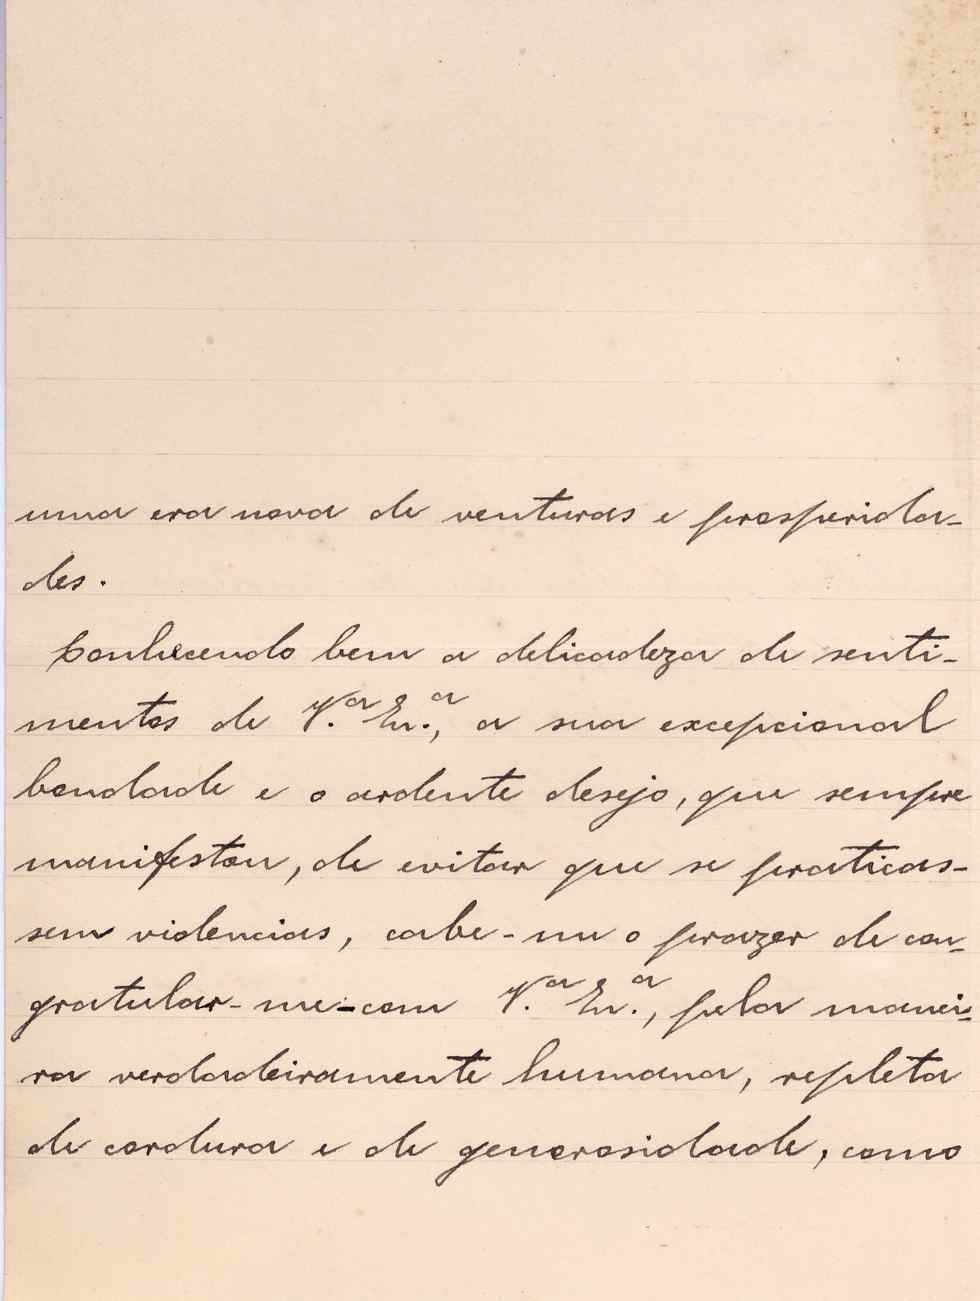 uma era nova de venturas e prosperida-
des.
Conhecendo bem a delicadeza de senti-
mentos de V.ª Ex.ª, a sua excepcional
bondade e o ardente desejo, que sempre
manifestou, de evitar que se praticas-
sem violencias, cabe-me o prazer de con-
gratular-me-com V.ª Ex.ª, pela manei-
ra verdadeiramente humana, repleta
de cordura e de generosidade, como